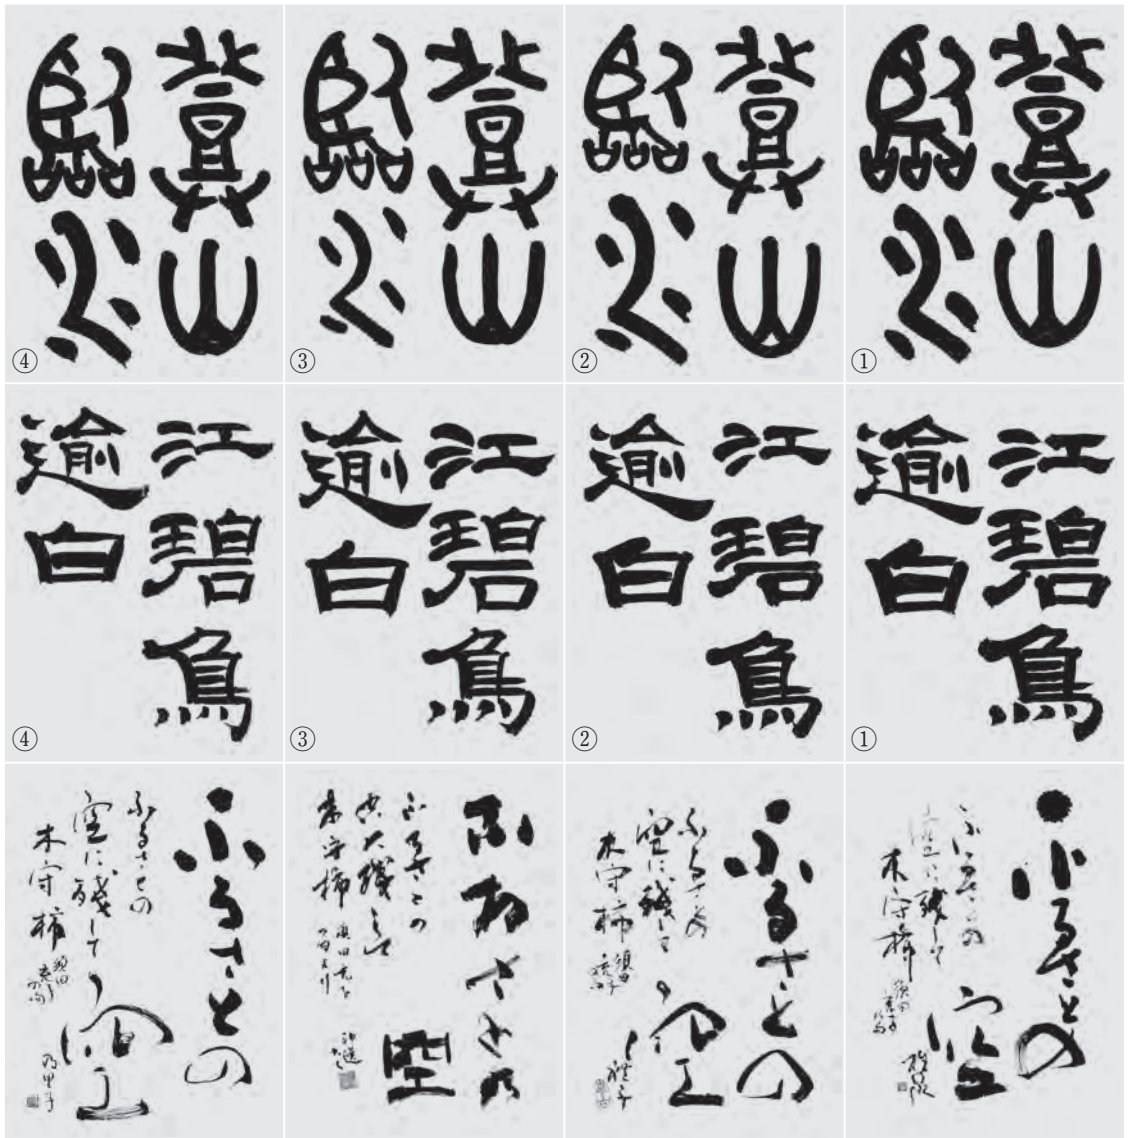 登山
臨水
①
登山
臨水
②
登山
臨水
③
登山
臨水
④
江碧鳥
逾白
①
江碧鳥
逾白
②
江碧鳥
逾白
③
江碧鳥
逾白
④
ふるさとの
空
ふるさとの
空に残して
木守柿
ふるさとの
空
ふるさとの
空に残して
木守柿
ふるさとの
空
ふるさとの
空に残して
木守柿
ふるさとの
空
ふるさとの
空に残して
木守柿